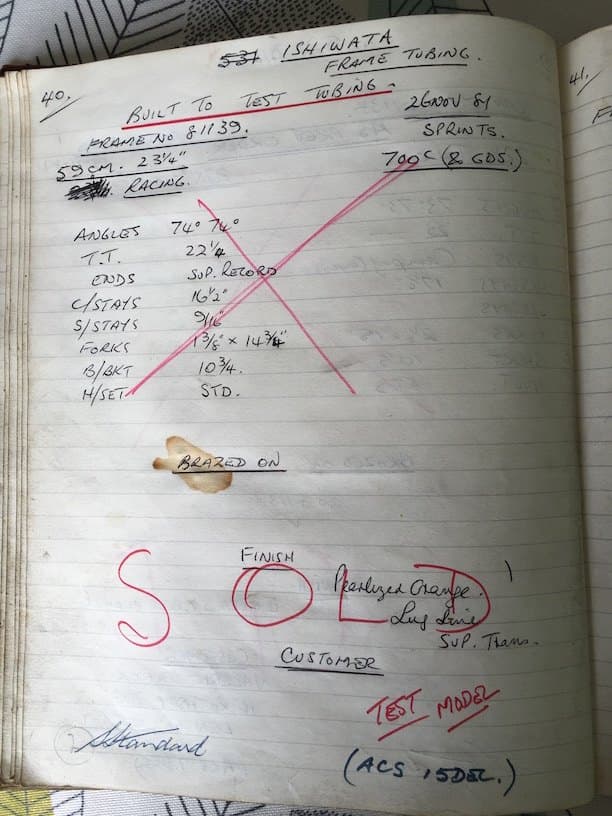 40.
531 ISHIWATA
FRAME TUBING.
BUILT TO TEST TUBING
26 NOV 81
FRAME NO 81139.
SPRINTS.
59 CM. 23 1/4"
700C (& GDS.)
RACING.
ANGLES 74° 74°
T.T. 22 1/4
ENDS SUP. RECORD
C/STAYS 16 1/2"
S/STAYS 9/16"
FORKS 1 3/8" x 14 3/4"
B/BKT 10 3/4.
H/SET STD.
BRAZED ON
FINISH
SOLD
Pearlized Orange.
Lug Line
SUP. Trans.
CUSTOMER
TEST MODEL
(ACS 15 DEC.)
41.